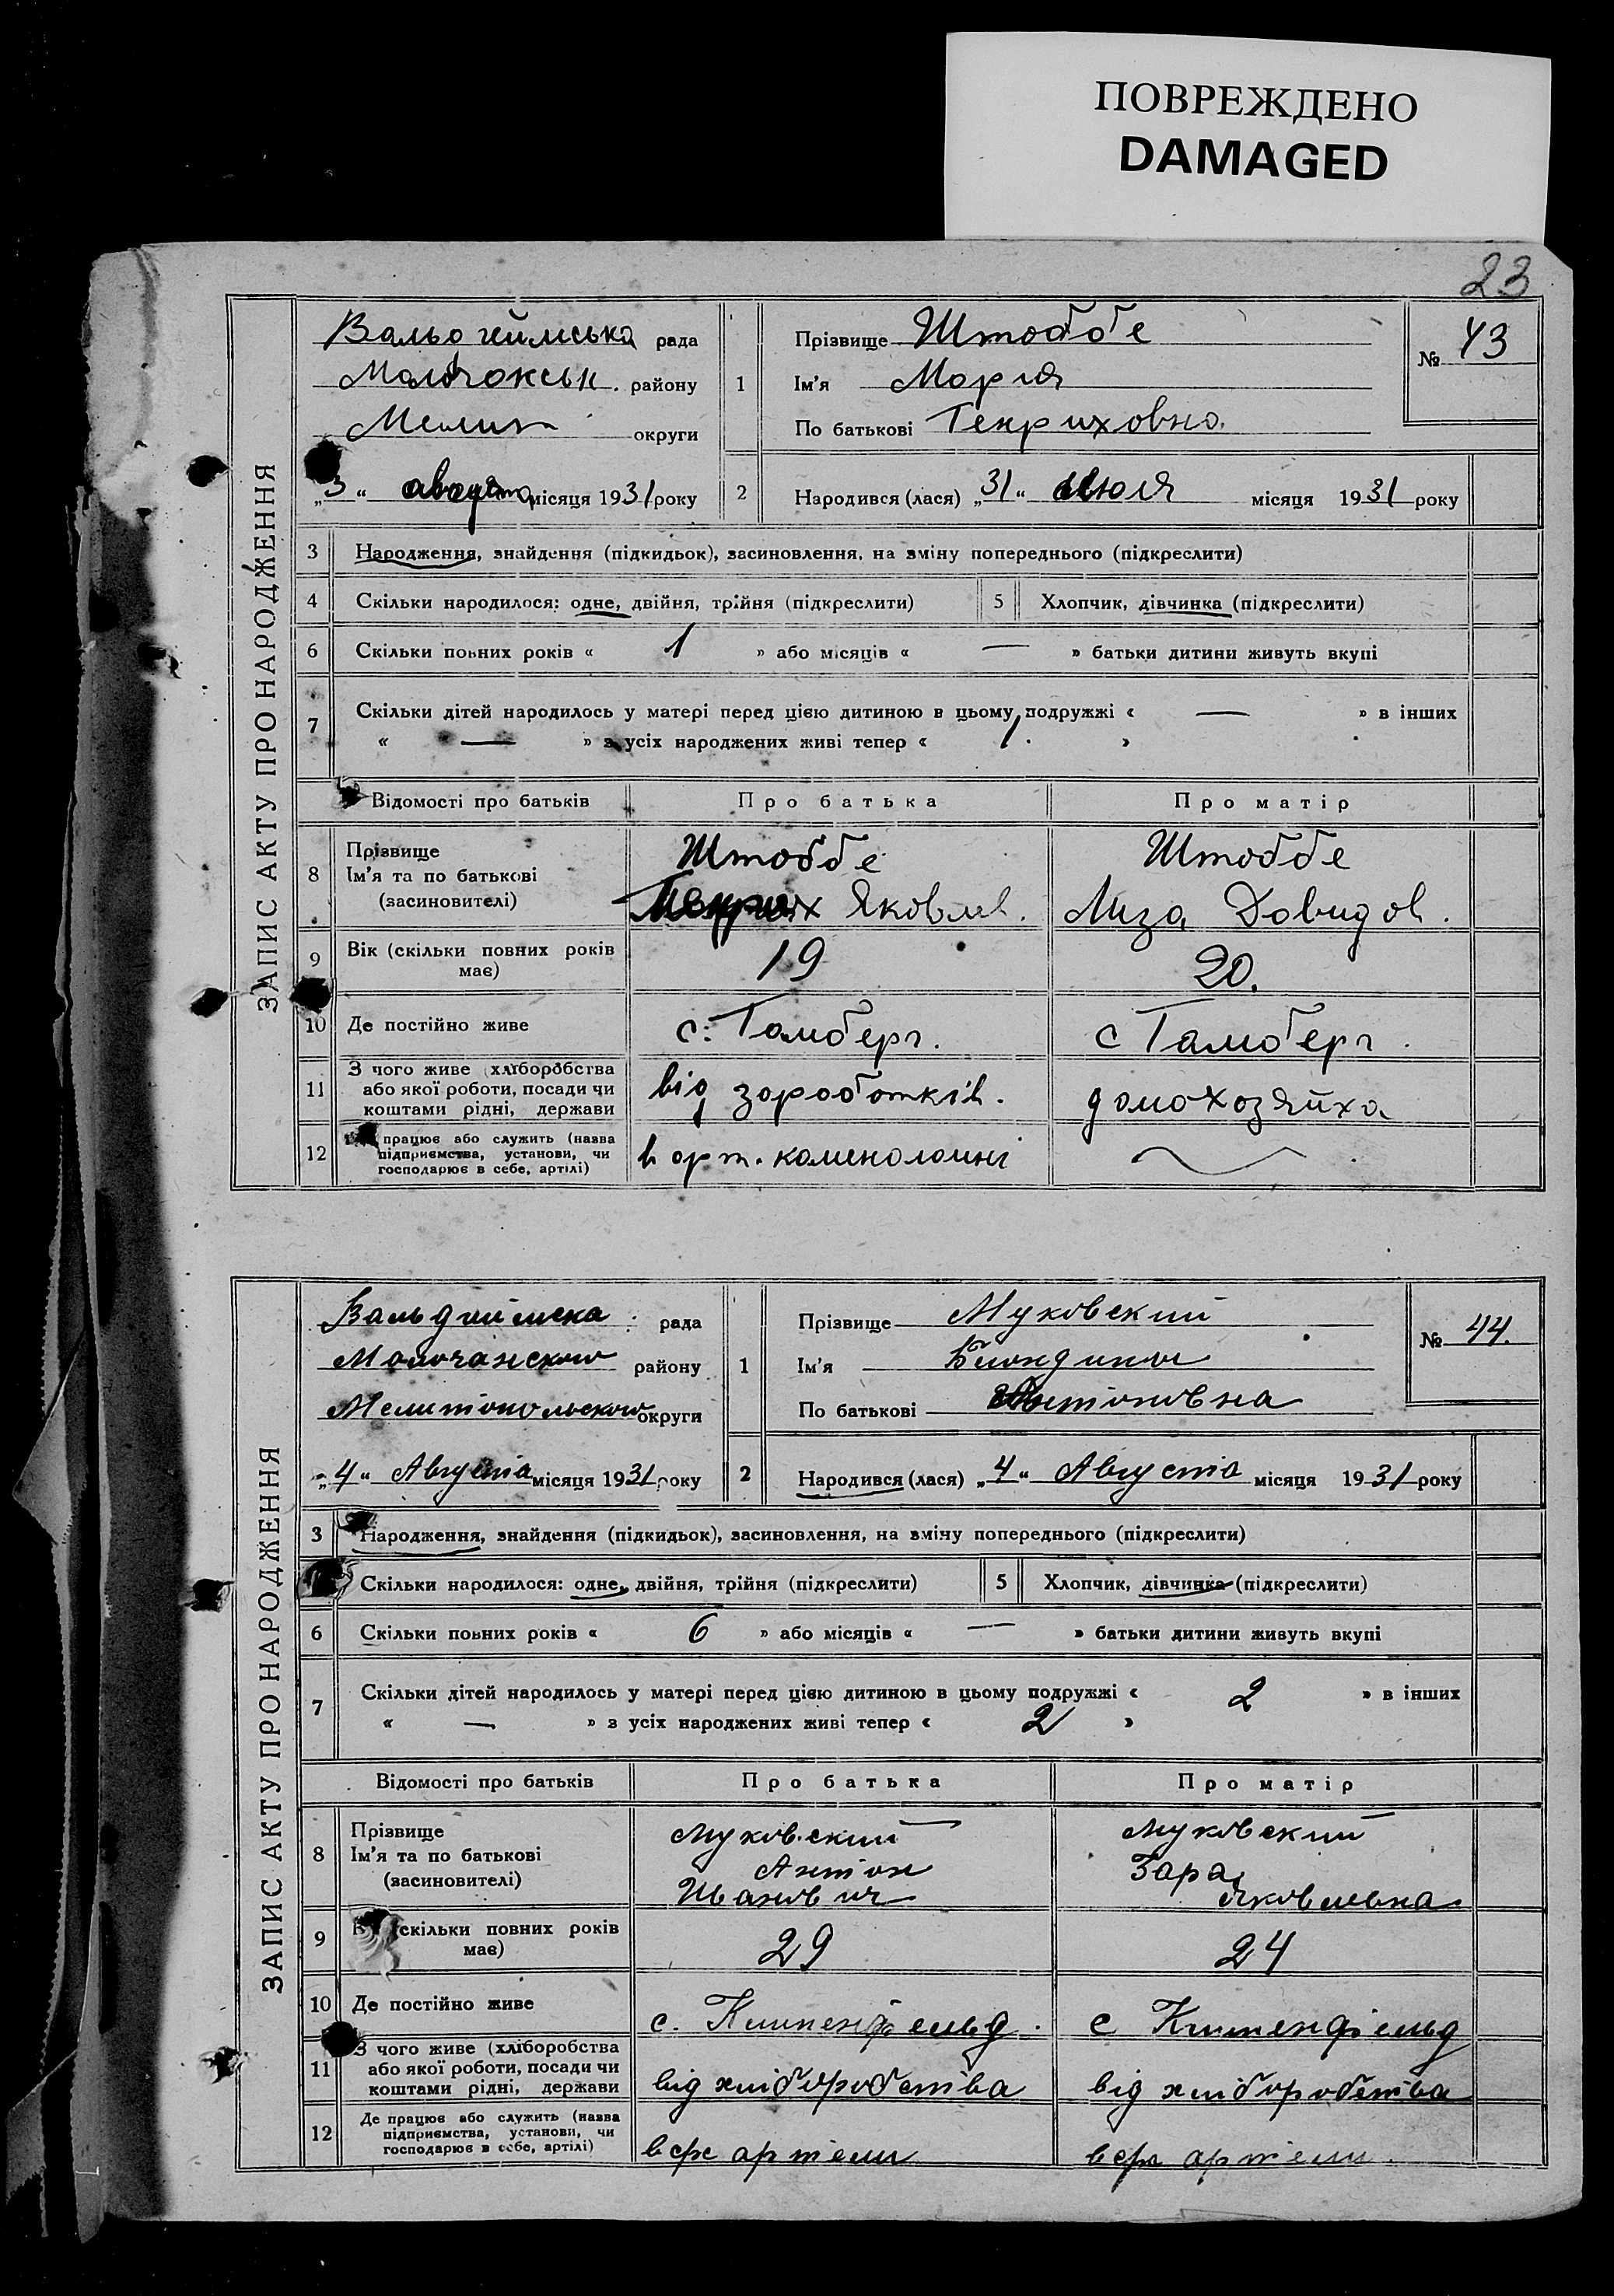 ПОВРЕЖДЕНО
DAMAGED
23
ЗАПИС АКТУ ПРО НАРОДЖЕННЯ
Вальдгеймська рада
Молочокськ. району
Мелит округи
„3“ августа місяця 1931 року
1 Прізвище Штоббе
Ім'я Мария
По батькові Генриховна.
№ 43
2 Народився (лася) „31“ Июля місяця 1931 року
3 Народження, знайдення (підкидьок), засиновлення, на зміну попереднього (підкреслити)
4 Скільки народилося: одне, двійня, трійня (підкреслити) 5 Хлопчик, дівчинка (підкреслити)
6 Скільки повних років « 1 » або місяців « — » батьки дитини живуть вкупі
7 Скільки дітей народилось у матері перед цією дитиною в цьому подружжі « — » в інших
« — » з усіх народжених живі тепер « 1. »
Відомості про батьків Про батька Про матір
8 Прізвище
Ім'я та по батькові
(засиновителі)
Штоббе Штоббе
Генрих Яковлев. Лиза Давидов.
9 Вік (скільки повних років
має)
19 20.
10 Де постійно живе с. Гамберг. с Гамберг.
11 З чого живе (хліборобства
або якої роботи, посади чи
коштами рідні, держави
від заработків. домохозяйха
12 працює або служить (назва
підприємства, установи, чи
господарює в себе, артілі)
в арт. каменоломні
ЗАПИС АКТУ ПРО НАРОДЖЕННЯ
Вальдгиймска рада
Молочанского району
Мелитопольского округи
„4“ Августа місяця 1931 року
1 Прізвище Муковский
Ім'я Блондина
По батькові Антоновна
№ 44.
2 Народився (лася) „4“ Августа місяця 1931 року
3 Народження, знайдення (підкидьок), засиновлення, на зміну попереднього (підкреслити)
Скільки народилося: одне, двійня, трійня (підкреслити) 5 Хлопчик, дівчинка (підкреслити)
6 Скільки повних років « 6 » або місяців « — » батьки дитини живуть вкупі
7 Скільки дітей народилось у матері перед цією дитиною в цьому подружжі « 2 » в інших
« — » з усіх народжених живі тепер « 2 »
Відомості про батьків Про батька Про матір
8 Прізвище
Ім'я та по батькові
(засиновителі)
Муковский Муковский
Антон Зара
Иванович Яковлевна
9 (скільки повних років
має)
29 24
10 Де постійно живе с. Клипенфельд. с Клипенфельд
11 З чого живе (хліборобства
або якої роботи, посади чи
коштами рідні, держави
від хліборобства від хліборобства
12 Де працює або служить (назва
підприємства, установи, чи
господарює в себе, артілі)
в артели в артели